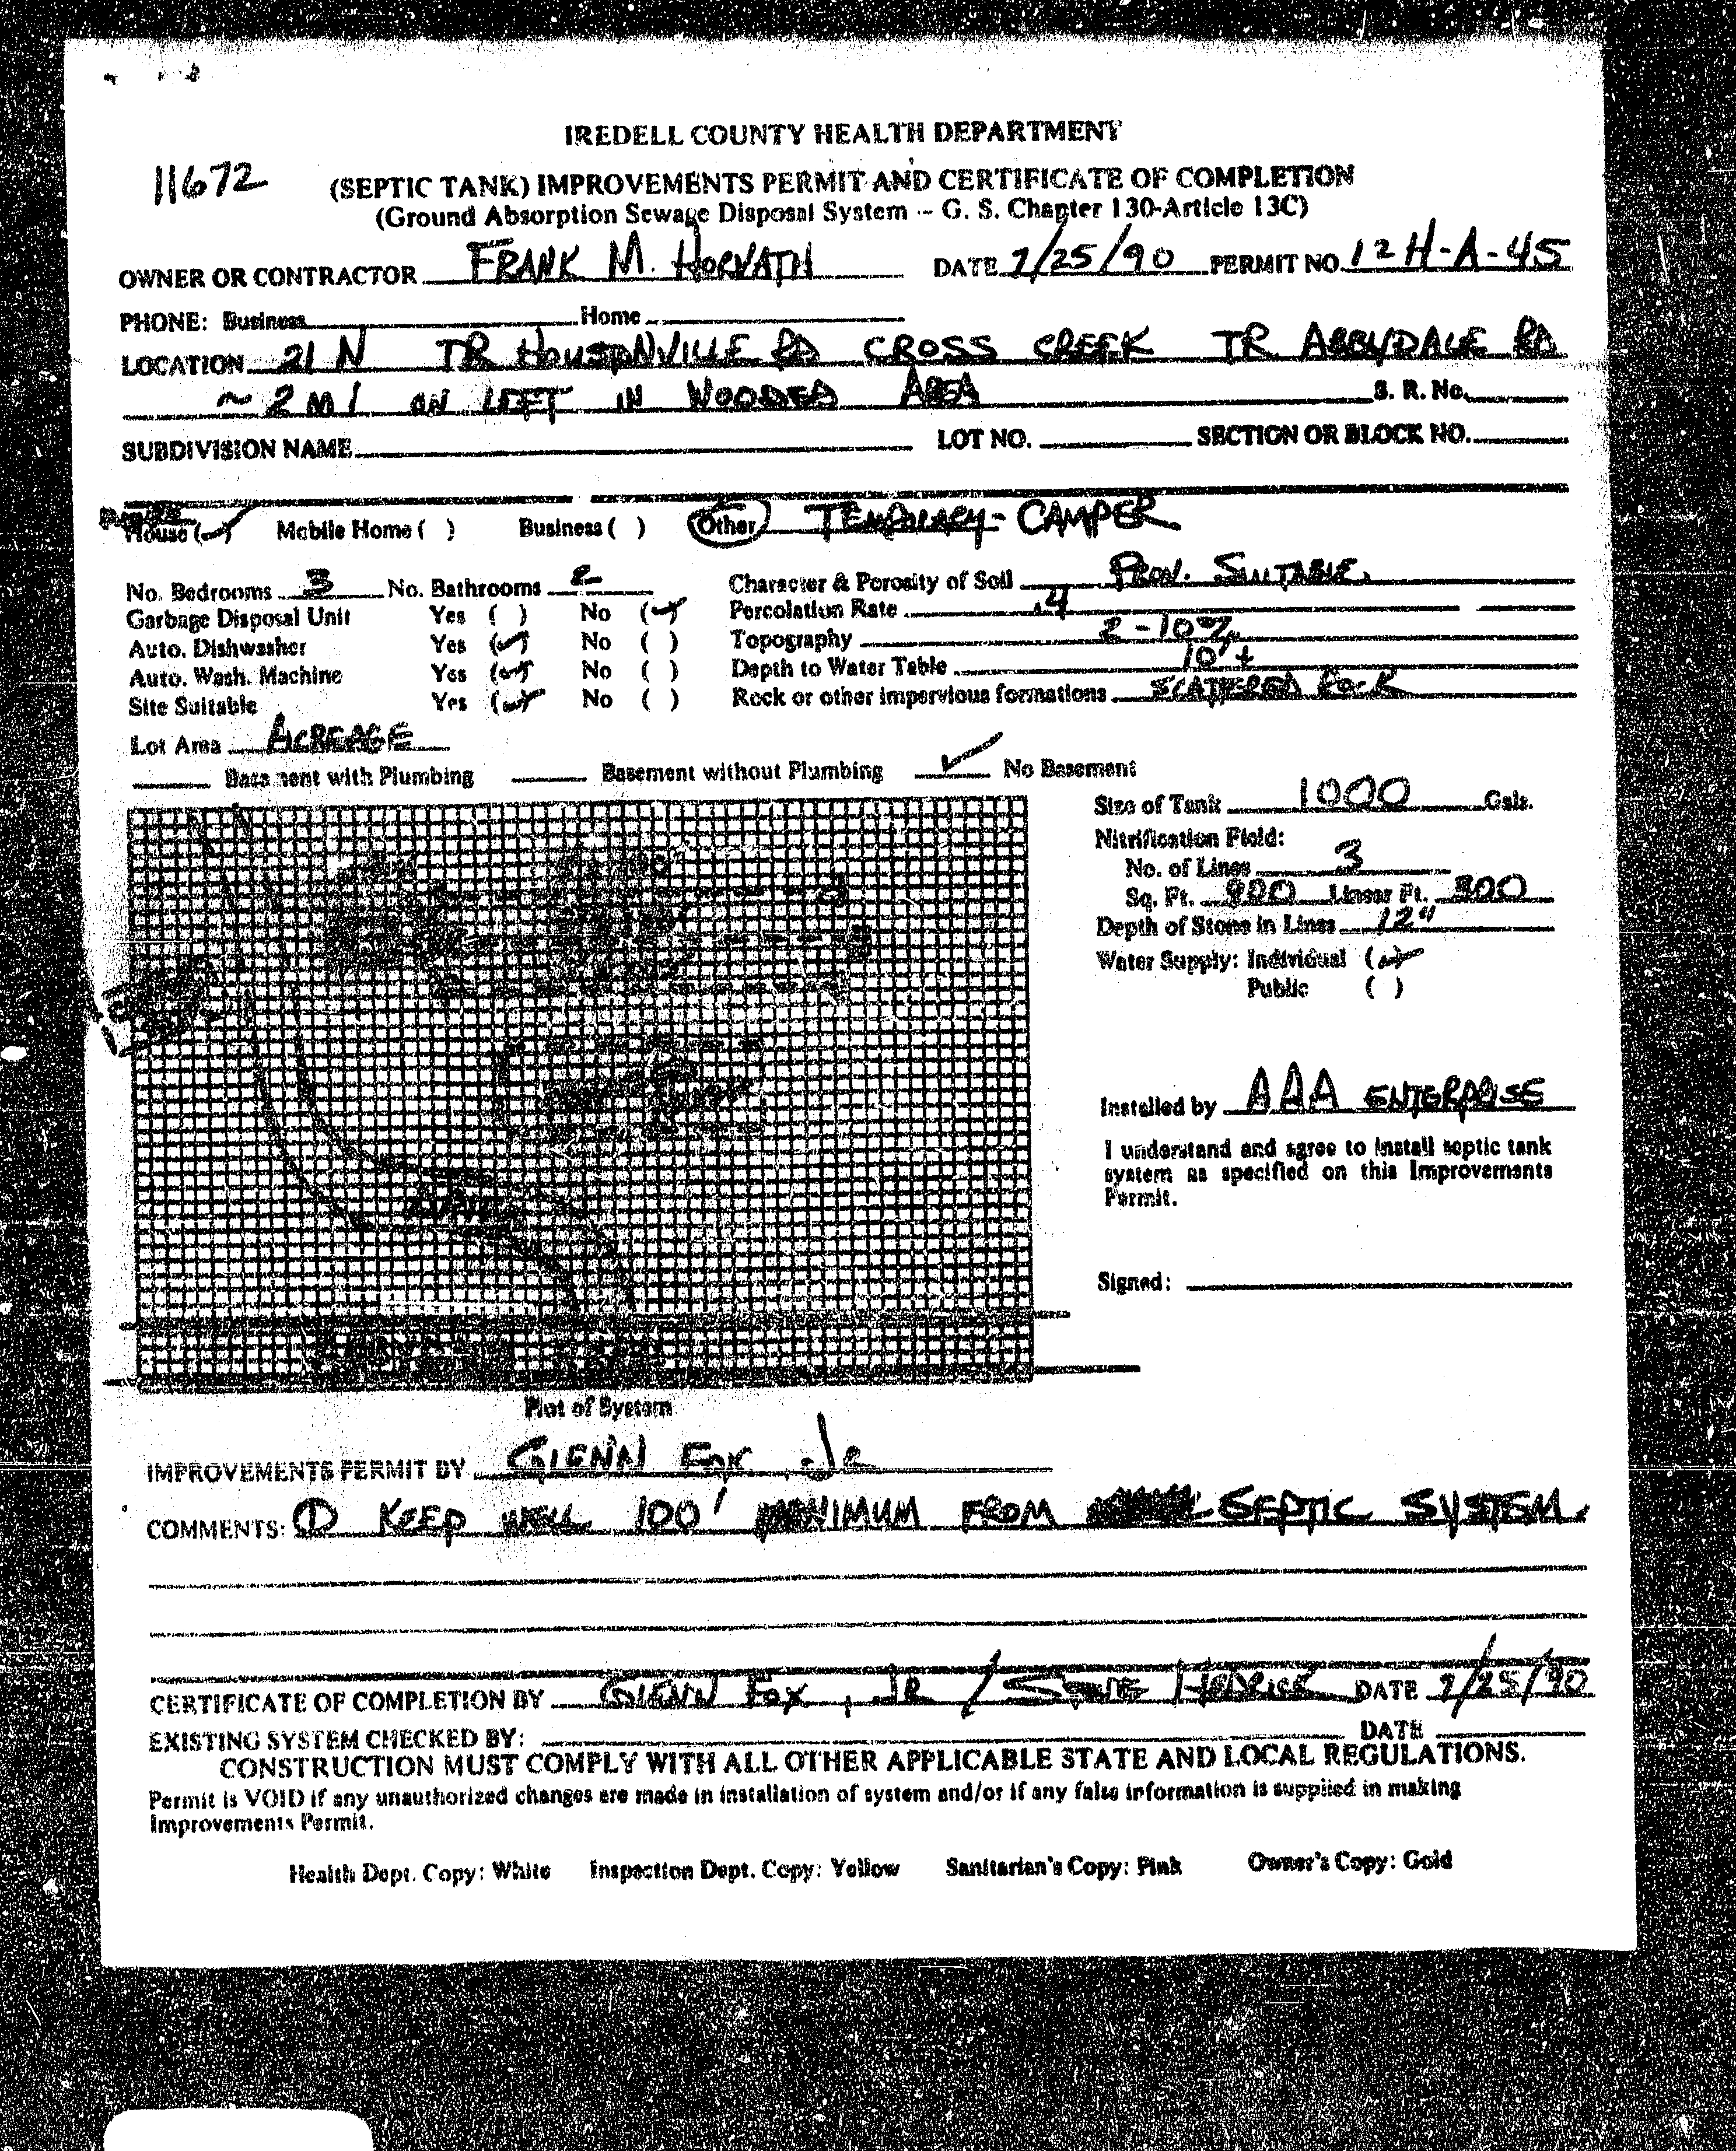 IREDELL COUNTY HEALTH DEPARTMENT
11672
(SEPTIC TANK) IMPROVEMENTS PERMIT AND CERTIFICATE OF COMPLETION
(Ground Absorption Sewage Disposal System -- G. S. Chapter 130-Article 13C)
OWNER OR CONTRACTOR FRANK M. HORVATH DATE /25/90 PERMIT NO. 12H-A-45
PHONE: Business Home
LOCATION 21 N TR HOUSTONVILLE RD CROSS CREEK TR RD
~ 2 MI ON LEFT IN WOODED AREA S. R. No.
SUBDIVISION NAME LOT NO. SECTION OR BLOCK NO.
House (✓) Mobile Home ( ) Business ( ) Other TEMPORARY - CAMPER
No. Bedrooms 3 No. Bathrooms 2 Character & Porosity of Soil PROV. SUITABLE
Garbage Disposal Unit Yes ( ) No (✓) Percolation Rate .4
Auto. Dishwasher Yes (✓) No ( ) Topography 2-10%
Auto. Wash. Machine Yes (✓) No ( ) Depth to Water Table 10'+
Site Suitable Yes (✓) No ( ) Rock or other impervious formations SCATTERED ROCK
Lot Area ACREAGE
Basement with Plumbing Basement without Plumbing ✓ No Basement
Size of Tank 1000 Gals.
Nitrification Field:
No. of Lines 3
Sq. Ft. 900 Linear Ft. 300
Depth of Stone in Lines 12"
Water Supply: Individual (✓)
Public ( )
Installed by AAA ENTERPRISE
I understand and agree to install septic tank
system as specified on this Improvements
Permit.
Signed:
Plot of System
IMPROVEMENTS PERMIT BY GLENN FOX JR
COMMENTS: ① KEEP WELL 100' MINIMUM FROM SEPTIC SYSTEM.
CERTIFICATE OF COMPLETION BY GLENN FOX, JR / HEDRICK DATE /25/90
EXISTING SYSTEM CHECKED BY: DATE
CONSTRUCTION MUST COMPLY WITH ALL OTHER APPLICABLE STATE AND LOCAL REGULATIONS.
Permit is VOID if any unauthorized changes are made in installation of system and/or if any false information is supplied in making
Improvements Permit.
Health Dept. Copy: White Inspection Dept. Copy: Yellow Sanitarian's Copy: Pink Owner's Copy: Gold